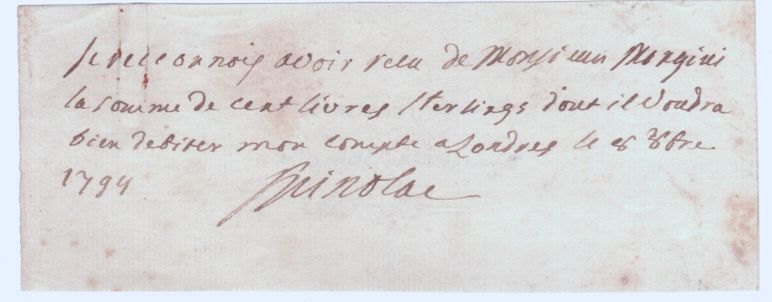 Je reconnois avoir recu de Monsieur Mongini
la somme de cent livres sterlings dont il voudra
bien debiter mon compte a Londres le 8 8bre
1794 Spinolae